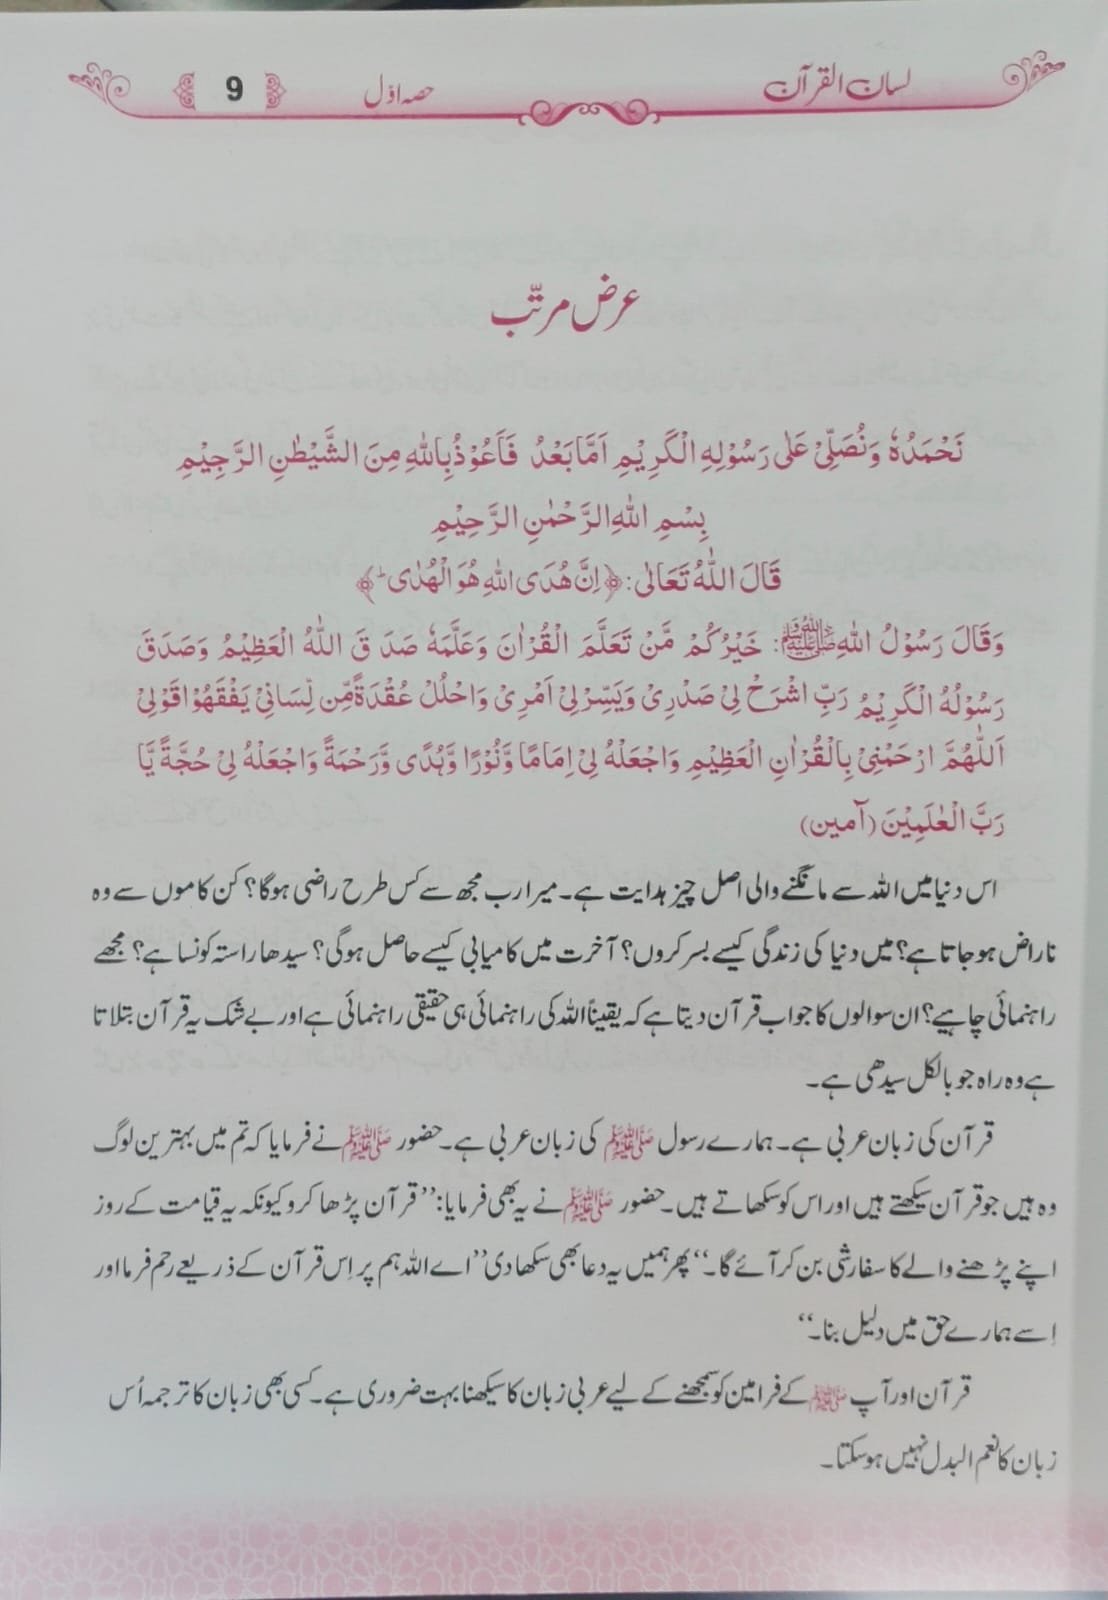 لسان القرآن
حصہ اوّل
9
عرض مرتّب
نَحْمَدُهٗ وَنُصَلِّىْ عَلٰى رَسُوْلِهِ الْكَرِيْمِ اَمَّا بَعْدُ فَاَعُوْذُ بِاللّٰهِ مِنَ الشَّيْطٰنِ الرَّجِيْمِ
بِسْمِ اللّٰهِ الرَّحْمٰنِ الرَّحِيْمِ
قَالَ اللّٰهُ تَعَالٰى: ﴿اِنَّ هُدَى اللّٰهِ هُوَ الْهُدٰى ؕ﴾
وَقَالَ رَسُوْلُ اللّٰهِ ﷺ: خَيْرُكُمْ مَّنْ تَعَلَّمَ الْقُرْاٰنَ وَعَلَّمَهٗ صَدَقَ اللّٰهُ الْعَظِيْمُ وَصَدَقَ
رَسُوْلُهُ الْكَرِيْمُ رَبِّ اشْرَحْ لِىْ صَدْرِىْ وَيَسِّرْ لِىْ اَمْرِىْ وَاحْلُلْ عُقْدَةً مِّنْ لِّسَانِىْ يَفْقَهُوْا قَوْلِىْ
اَللّٰهُمَّ ارْحَمْنِىْ بِالْقُرْاٰنِ الْعَظِيْمِ وَاجْعَلْهُ لِىْ اِمَامًا وَّنُوْرًا وَّهُدًى وَّرَحْمَةً وَاجْعَلْهُ لِىْ حُجَّةً يَّا
رَبَّ الْعٰلَمِيْنَ (آمین)
اس دنیا میں اللہ سے مانگنے والی اصل چیز ہدایت ہے۔ میرا رب مجھ سے کس طرح راضی ہوگا؟ کن کاموں سے وہ
ناراض ہو جاتا ہے؟ میں دنیا کی زندگی کیسے بسر کروں؟ آخرت میں کامیابی کیسے حاصل ہوگی؟ سیدھا راستہ کونسا ہے؟ مجھے
راہنمائی چاہیے؟ ان سوالوں کا جواب قرآن دیتا ہے کہ یقیناً اللہ کی راہنمائی ہی حقیقی راہنمائی ہے اور بے شک یہ قرآن بتلاتا
ہے وہ راہ جو بالکل سیدھی ہے۔
قرآن کی زبان عربی ہے۔ ہمارے رسول ﷺ کی زبان عربی ہے۔ حضور ﷺ نے فرمایا کہ تم میں بہترین لوگ
وہ ہیں جو قرآن سیکھتے ہیں اور اس کو سکھاتے ہیں۔ حضور ﷺ نے یہ بھی فرمایا: ”قرآن پڑھا کرو کیونکہ یہ قیامت کے روز
اپنے پڑھنے والے کا سفارشی بن کر آئے گا۔“ پھر ہمیں یہ دعا بھی سکھا دی ”اے اللہ ہم پر اِس قرآن کے ذریعے رحم فرما اور
اِسے ہمارے حق میں دلیل بنا۔“
قرآن اور آپ ﷺ کے فرامین کو سمجھنے کے لیے عربی زبان کا سیکھنا بہت ضروری ہے۔ کسی بھی زبان کا ترجمہ اُس
زبان کا نعم البدل نہیں ہو سکتا۔